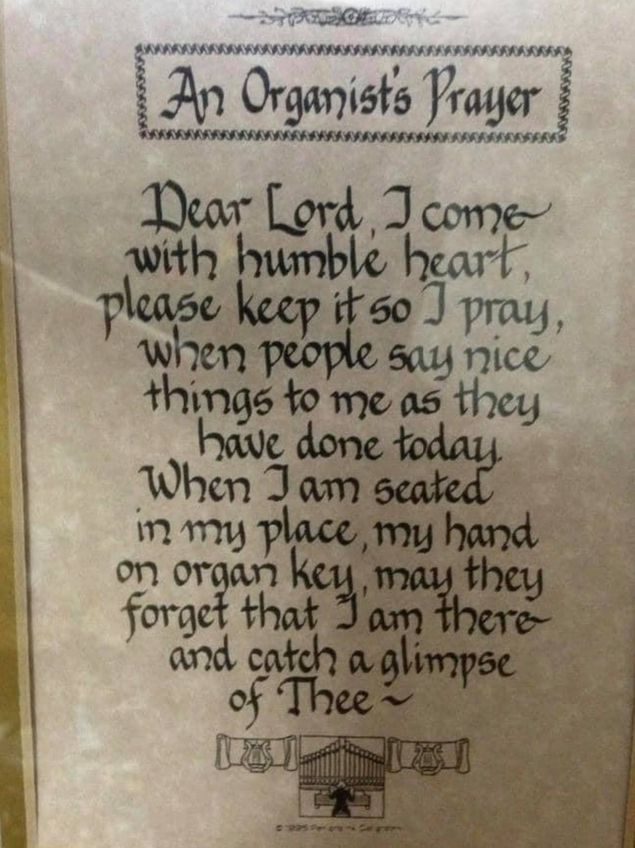 An Organist's Prayer
Dear Lord, I come
with humble heart,
please keep it so I pray,
when people say nice
things to me as they
have done today.
When I am seated
in my place, my hand
on organ key, may they
forget that I am there
and catch a glimpse
of Thee ~
©